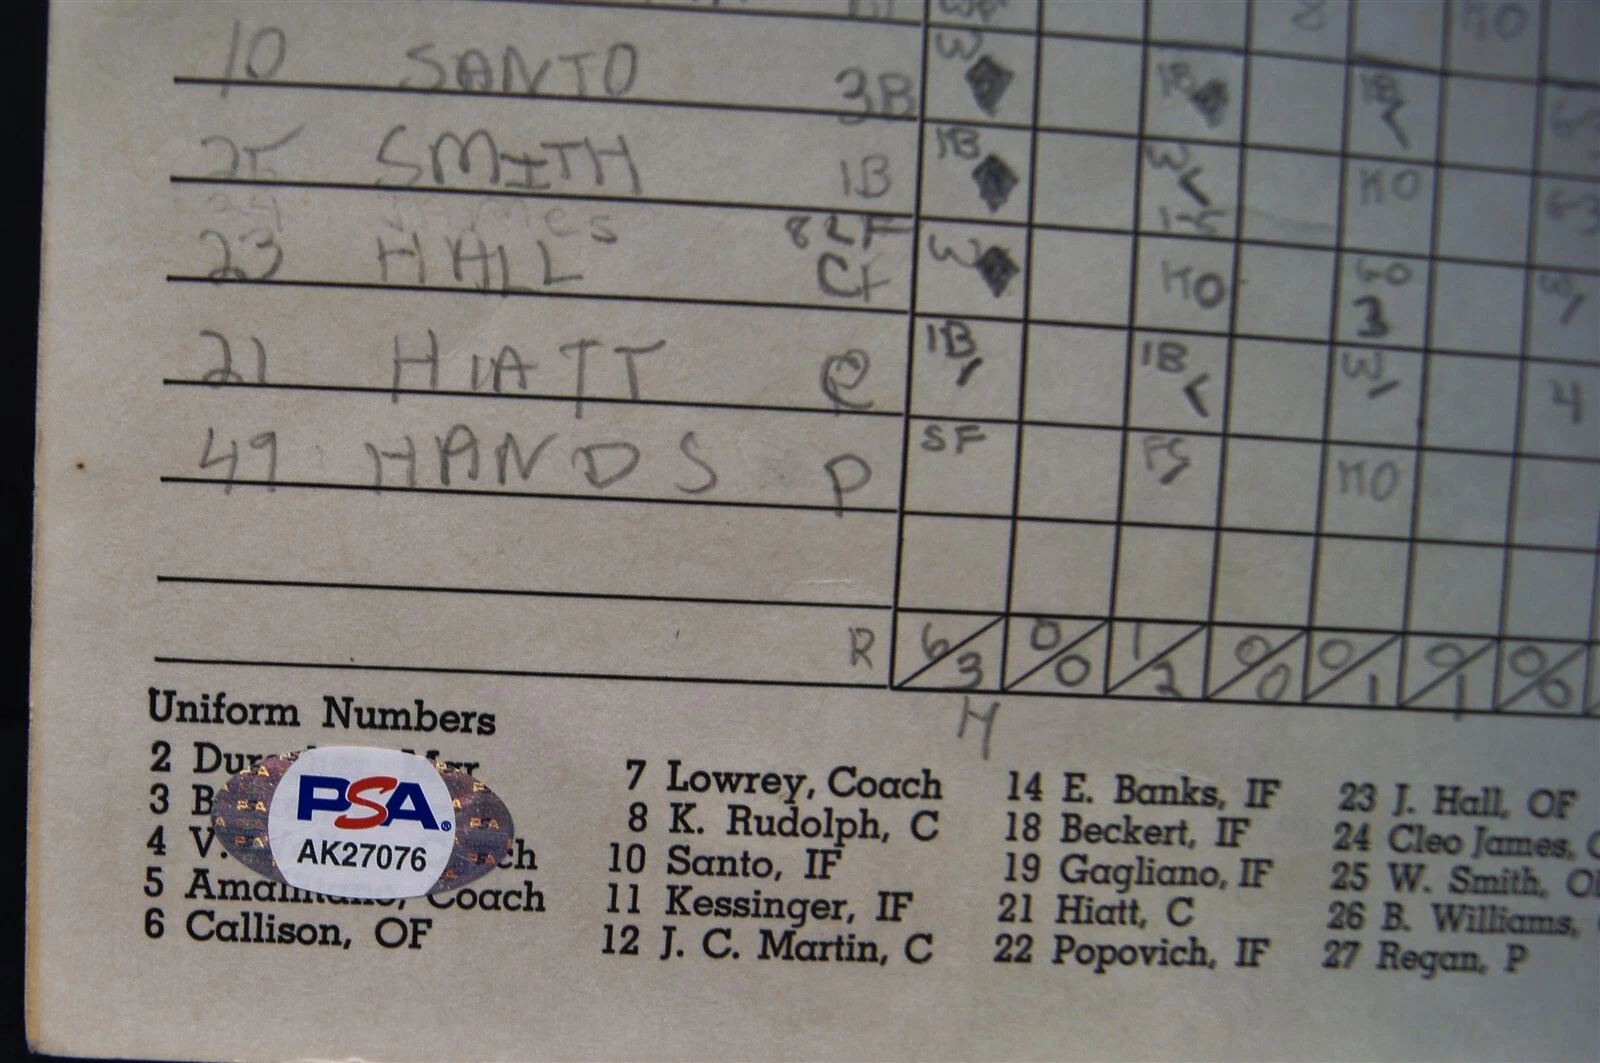 10 SANTO 3B W 1B 1B
25 SMITH 1B 1B W 1-5 KO 63
24 James 8 LF
23 HALL CF W KO GO 3 W
21 HIATT C 1B 1B W 4
49 HANDS P SF FS KO
R 6/3 0/0 1/2 0/0 0/1 0/1 0/0
H
Uniform Numbers
2 Mgr
3 B
4 V. ch
5 Coach
6 Callison, OF
PSA®
AK27076
7 Lowrey, Coach
8 K. Rudolph, C
10 Santo, IF
11 Kessinger, IF
12 J. C. Martin, C
14 E. Banks, IF
18 Beckert, IF
19 Gagliano, IF
21 Hiatt, C
22 Popovich, IF
23 J. Hall, OF
24 Cleo James,
25 W. Smith,
26 B. Williams,
27 Regan, P